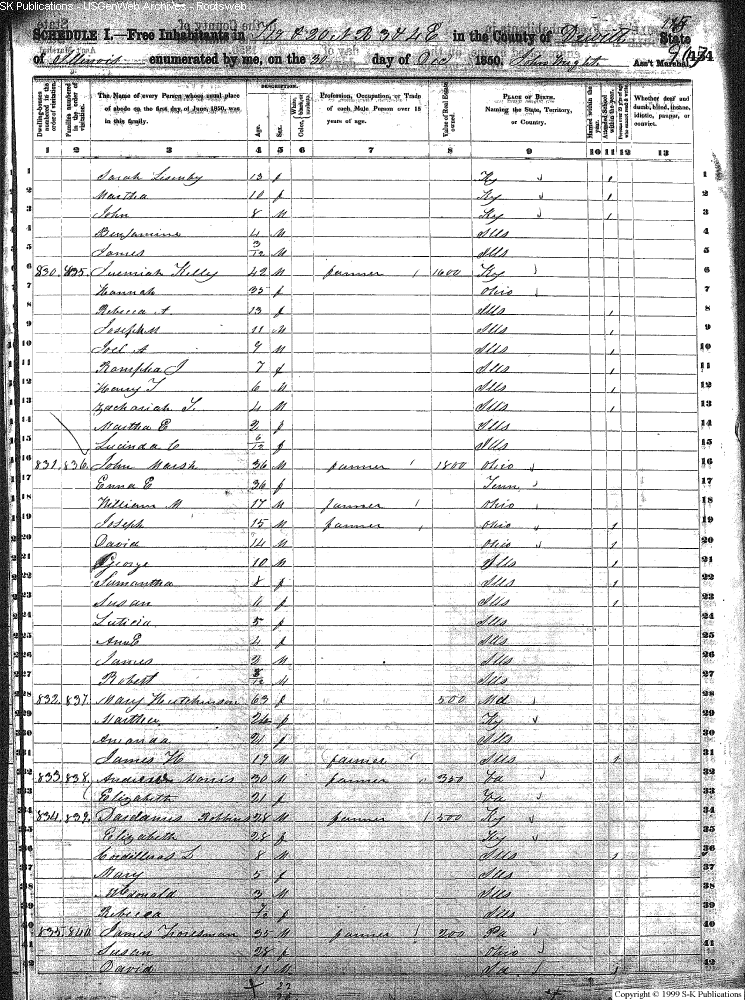 SK Publications - USGenWeb Archives - Rootsweb
SCHEDULE I.—Free Inhabitants in & 20 N R 3 & 4 E in the County of Dewitt State
of Illinois enumerated by me, on the 30 day of Oct 1850. John Wright Ass't Marshal.
Dwelling-houses numbered in the order of visitation.
Families numbered in the order of visitation.
The Name of every Person whose usual place of abode on the first day of June, 1850, was in this family.
DESCRIPTION.
Age.
Sex.
White, black, or mulatto. Color,
Profession, Occupation, or Trade of each Male Person over 15 years of age.
Value of Real Estate owned.
PLACE OF BIRTH. Naming the State, Territory, or Country.
Married within the year.
Attended School within the year.
Persons over 20 y'rs of age who cannot read & write.
Whether deaf and dumb, blind, insane, idiotic, pauper, or convict.
1 2 3 4 5 6 7 8 9 10 11 12 13
1 Sarah Lisenby 13 f Ky / 1
2 Martha 10 f Ky / 2
3 John 8 M Ky / 3
4 Benjamine 4 M Ills 4
5 James 3/12 M Ills 5
6 830 835 Jeremiah Kelly 42 M farmer 1600 Ky 6
7 Hannah 35 f Ohio 7
8 Rebecca A. 13 f Ills / 8
9 Joseph M 11 M Ills / 9
10 Joel A 9 M Ills / 10
11 J 7 f Ills / 11
12 Henry T 6 M Ills / 12
13 Zachariah T. 4 M Ills / 13
14 Martha E 2 f Ills 14
15 Lucinda C 6/12 f Ills 15
16 831 836 John Marsh 36 M farmer 1800 Ohio 16
17 Enna E 36 f Tenn 17
18 William M 17 M farmer Ohio 18
19 Joseph 15 M farmer Ohio / 19
20 David 14 M Ohio / 20
21 George 10 M Ills / 21
22 Samantha 8 f Ills / 22
23 Susan 6 f Ills / 23
24 Luticia 5 f Ills 24
25 Ann E 4 f Ills 25
26 James 2 M Ills 26
27 Robert 8/12 M Ills 27
28 832 837 Mary Hutchinson 63 f 500 Md 28
29 Martha 24 f Ky 29
30 Amanda 21 f Ills 30
31 James H 19 M farmer Ills / 31
32 833 838 Andrew Morris 30 M farmer 350 Va 32
33 Elizabeth 21 f Va 33
34 834 839 Robbins 28 M farmer 500 Ky 34
35 Elizabeth 28 f Ky 35
36 Cordilleras L 8 M Ills / 36
37 Mary 5 f Ills 37
38 McDonald 3 M Ills 38
39 Rebecca f Ills 39
40 835 840 James 35 M farmer 200 Pa 40
41 Susan 28 f Ohio 41
42 David 11 M / 42
Copyright © 1999 S-K Publications